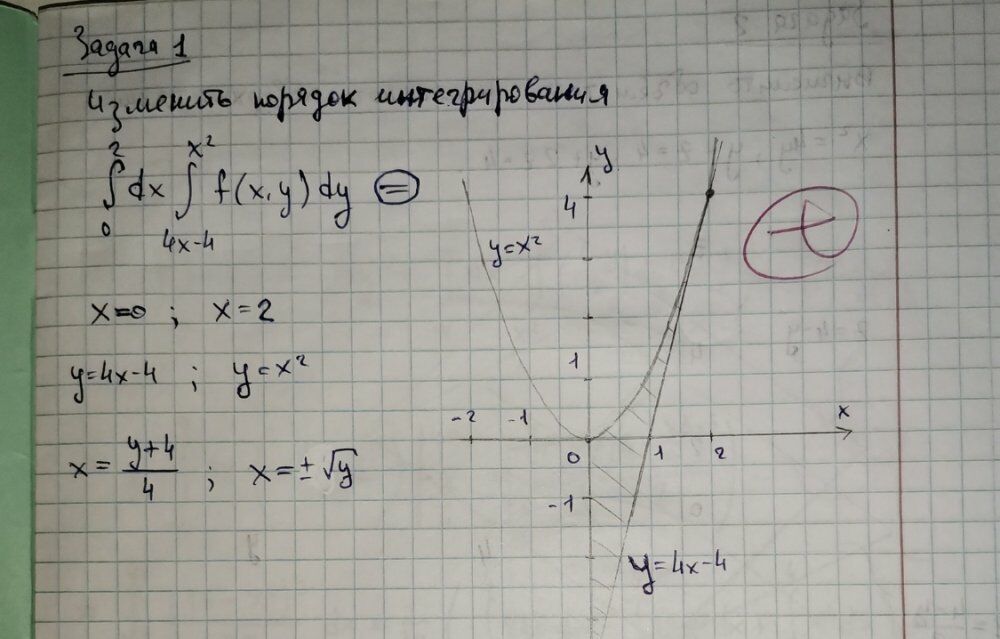 Задача 1
Изменить порядок интегрирования
∫₀² dx ∫₄ₓ₋₄^x² f(x,y) dy =
x=0 ; x=2
y=4x-4 ; y=x²
x = (y+4)/4 ; x = ±√y
y
4
y=x²
1
-2 -1 0 1 2 x
-1
y=4x-4
+